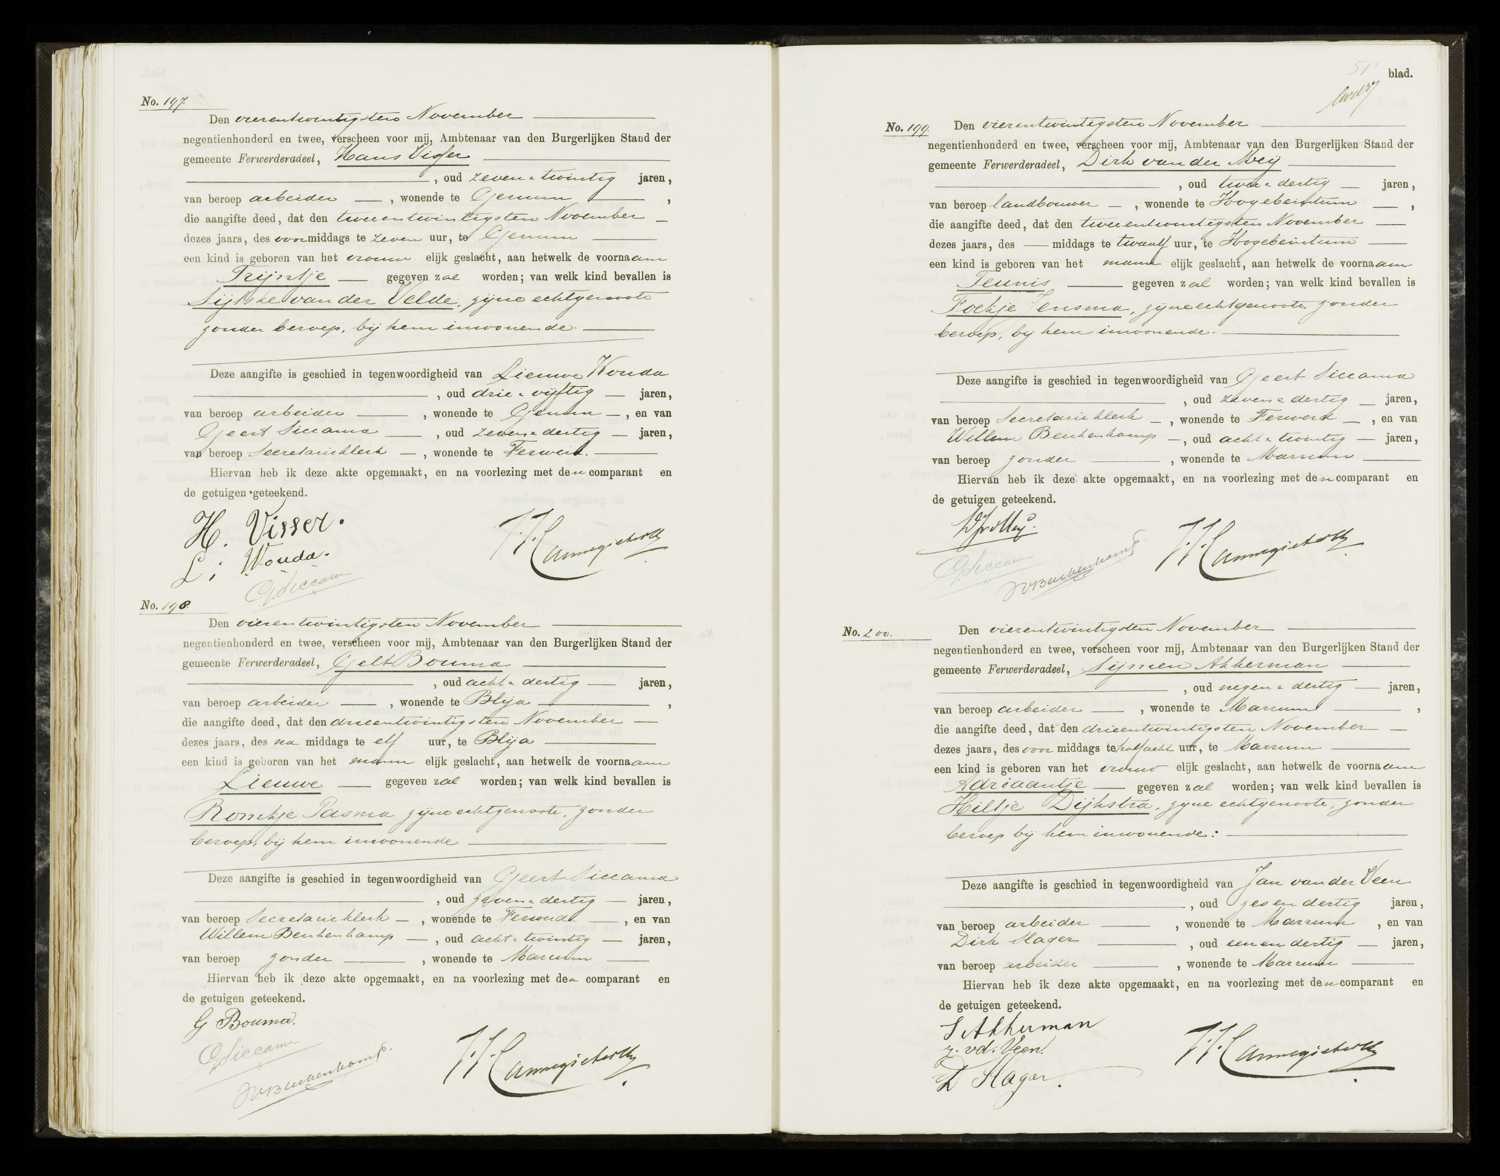 No. 197.
Den vierentwintigsten November
negentienhonderd en twee, verscheen voor mij, Ambtenaar van den Burgerlijken Stand der
gemeente Ferwerderadeel, Hans Visser
, oud zeven & twintig jaren,
van beroep arbeider , wonende te Genum ,
die aangifte deed, dat den tweeentwintigsten November
dezes jaars, des voormiddags te zeven uur, te Genum
een kind is geboren van het vrouwelijk geslacht, aan hetwelk de voornaam
Trijntje gegeven zal worden; van welk kind bevallen is
Sijtske van der Velde, zijne echtgenoote
zonder beroep, bij hem inwonende.
Deze aangifte is geschied in tegenwoordigheid van Lieuwe Wouda
, oud drie & vijftig jaren,
van beroep arbeider , wonende te Genum , en van
Geert Siccama , oud zeven & dertig jaren,
van beroep Secretarieklerk , wonende te Ferwerd.
Hiervan heb ik deze akte opgemaakt, en na voorlezing met den comparant en
de getuigen geteekend.
H. Visser.
L. Wouda.
GSiccama
No. 198
Den vierentwintigsten November
negentienhonderd en twee, verscheen voor mij, Ambtenaar van den Burgerlijken Stand der
gemeente Ferwerderadeel, Gelt Bouma
, oud acht & dertig jaren,
van beroep arbeider , wonende te Blija ,
die aangifte deed, dat den drieentwintigsten November
dezes jaars, des na middags te elf uur, te Blija
een kind is geboren van het mannelijk geslacht, aan hetwelk de voornaam
Lieuwe gegeven zal worden; van welk kind bevallen is
Romkje Pasma zijne echtgenoote, zonder
beroep, bij hem inwonende
Deze aangifte is geschied in tegenwoordigheid van Geert Siccama
, oud zeven & dertig jaren,
van beroep Secretarieklerk , wonende te Ferwerd , en van
Willem Beukenkamp , oud acht & twintig jaren,
van beroep zonder , wonende te Marrum
Hiervan heb ik deze akte opgemaakt, en na voorlezing met den comparant en
de getuigen geteekend.
G Bouma.
GSiccama
WBeukenkamp.
51e blad.
No. 199.
Den vierentwintigsten November
negentienhonderd en twee, verscheen voor mij, Ambtenaar van den Burgerlijken Stand der
gemeente Ferwerderadeel, Dirk van der Meij
, oud twee & dertig jaren,
van beroep landbouwer , wonende te Hoogebeintum ,
die aangifte deed, dat den tweeentwintigsten November
dezes jaars, des middags te twaalf uur, te Hoogebeintum
een kind is geboren van het mannelijk geslacht, aan hetwelk de voornaam
Teunis gegeven zal worden; van welk kind bevallen is
Foekje Tensma, zijne echtgenoote zonder
beroep, bij hem inwonende.
Deze aangifte is geschied in tegenwoordigheid van Geert Siccama
, oud zeven & dertig jaren,
van beroep Secretarieklerk , wonende te Ferwerd , en van
Willem Beukenkamp , oud acht & twintig jaren,
van beroep zonder , wonende te Marrum
Hiervan heb ik deze akte opgemaakt, en na voorlezing met den comparant en
de getuigen geteekend.
GSiccama
WBeukenkamp
No. 200.
Den vierentwintigsten November
negentienhonderd en twee, verscheen voor mij, Ambtenaar van den Burgerlijken Stand der
gemeente Ferwerderadeel, Sijmen Akkerman
, oud negen & dertig jaren,
van beroep arbeider , wonende te Marrum ,
die aangifte deed, dat den drieentwintigsten November
dezes jaars, des voor middags te half acht uur, te Marrum
een kind is geboren van het vrouwelijk geslacht, aan hetwelk de voornaam
Adriaantje gegeven zal worden; van welk kind bevallen is
Hiltje Dijkstra, zijne echtgenoote, zonder
beroep bij hem inwonende:
Deze aangifte is geschied in tegenwoordigheid van Jan van der Veen
, oud zes en dertig jaren,
van beroep arbeider , wonende te Marrum , en van
Dirk Hager , oud een en dertig jaren,
van beroep arbeider , wonende te Marrum
Hiervan heb ik deze akte opgemaakt, en na voorlezing met den comparant en
de getuigen geteekend.
S Akkerman
J. vd. Veen.
D Hager.